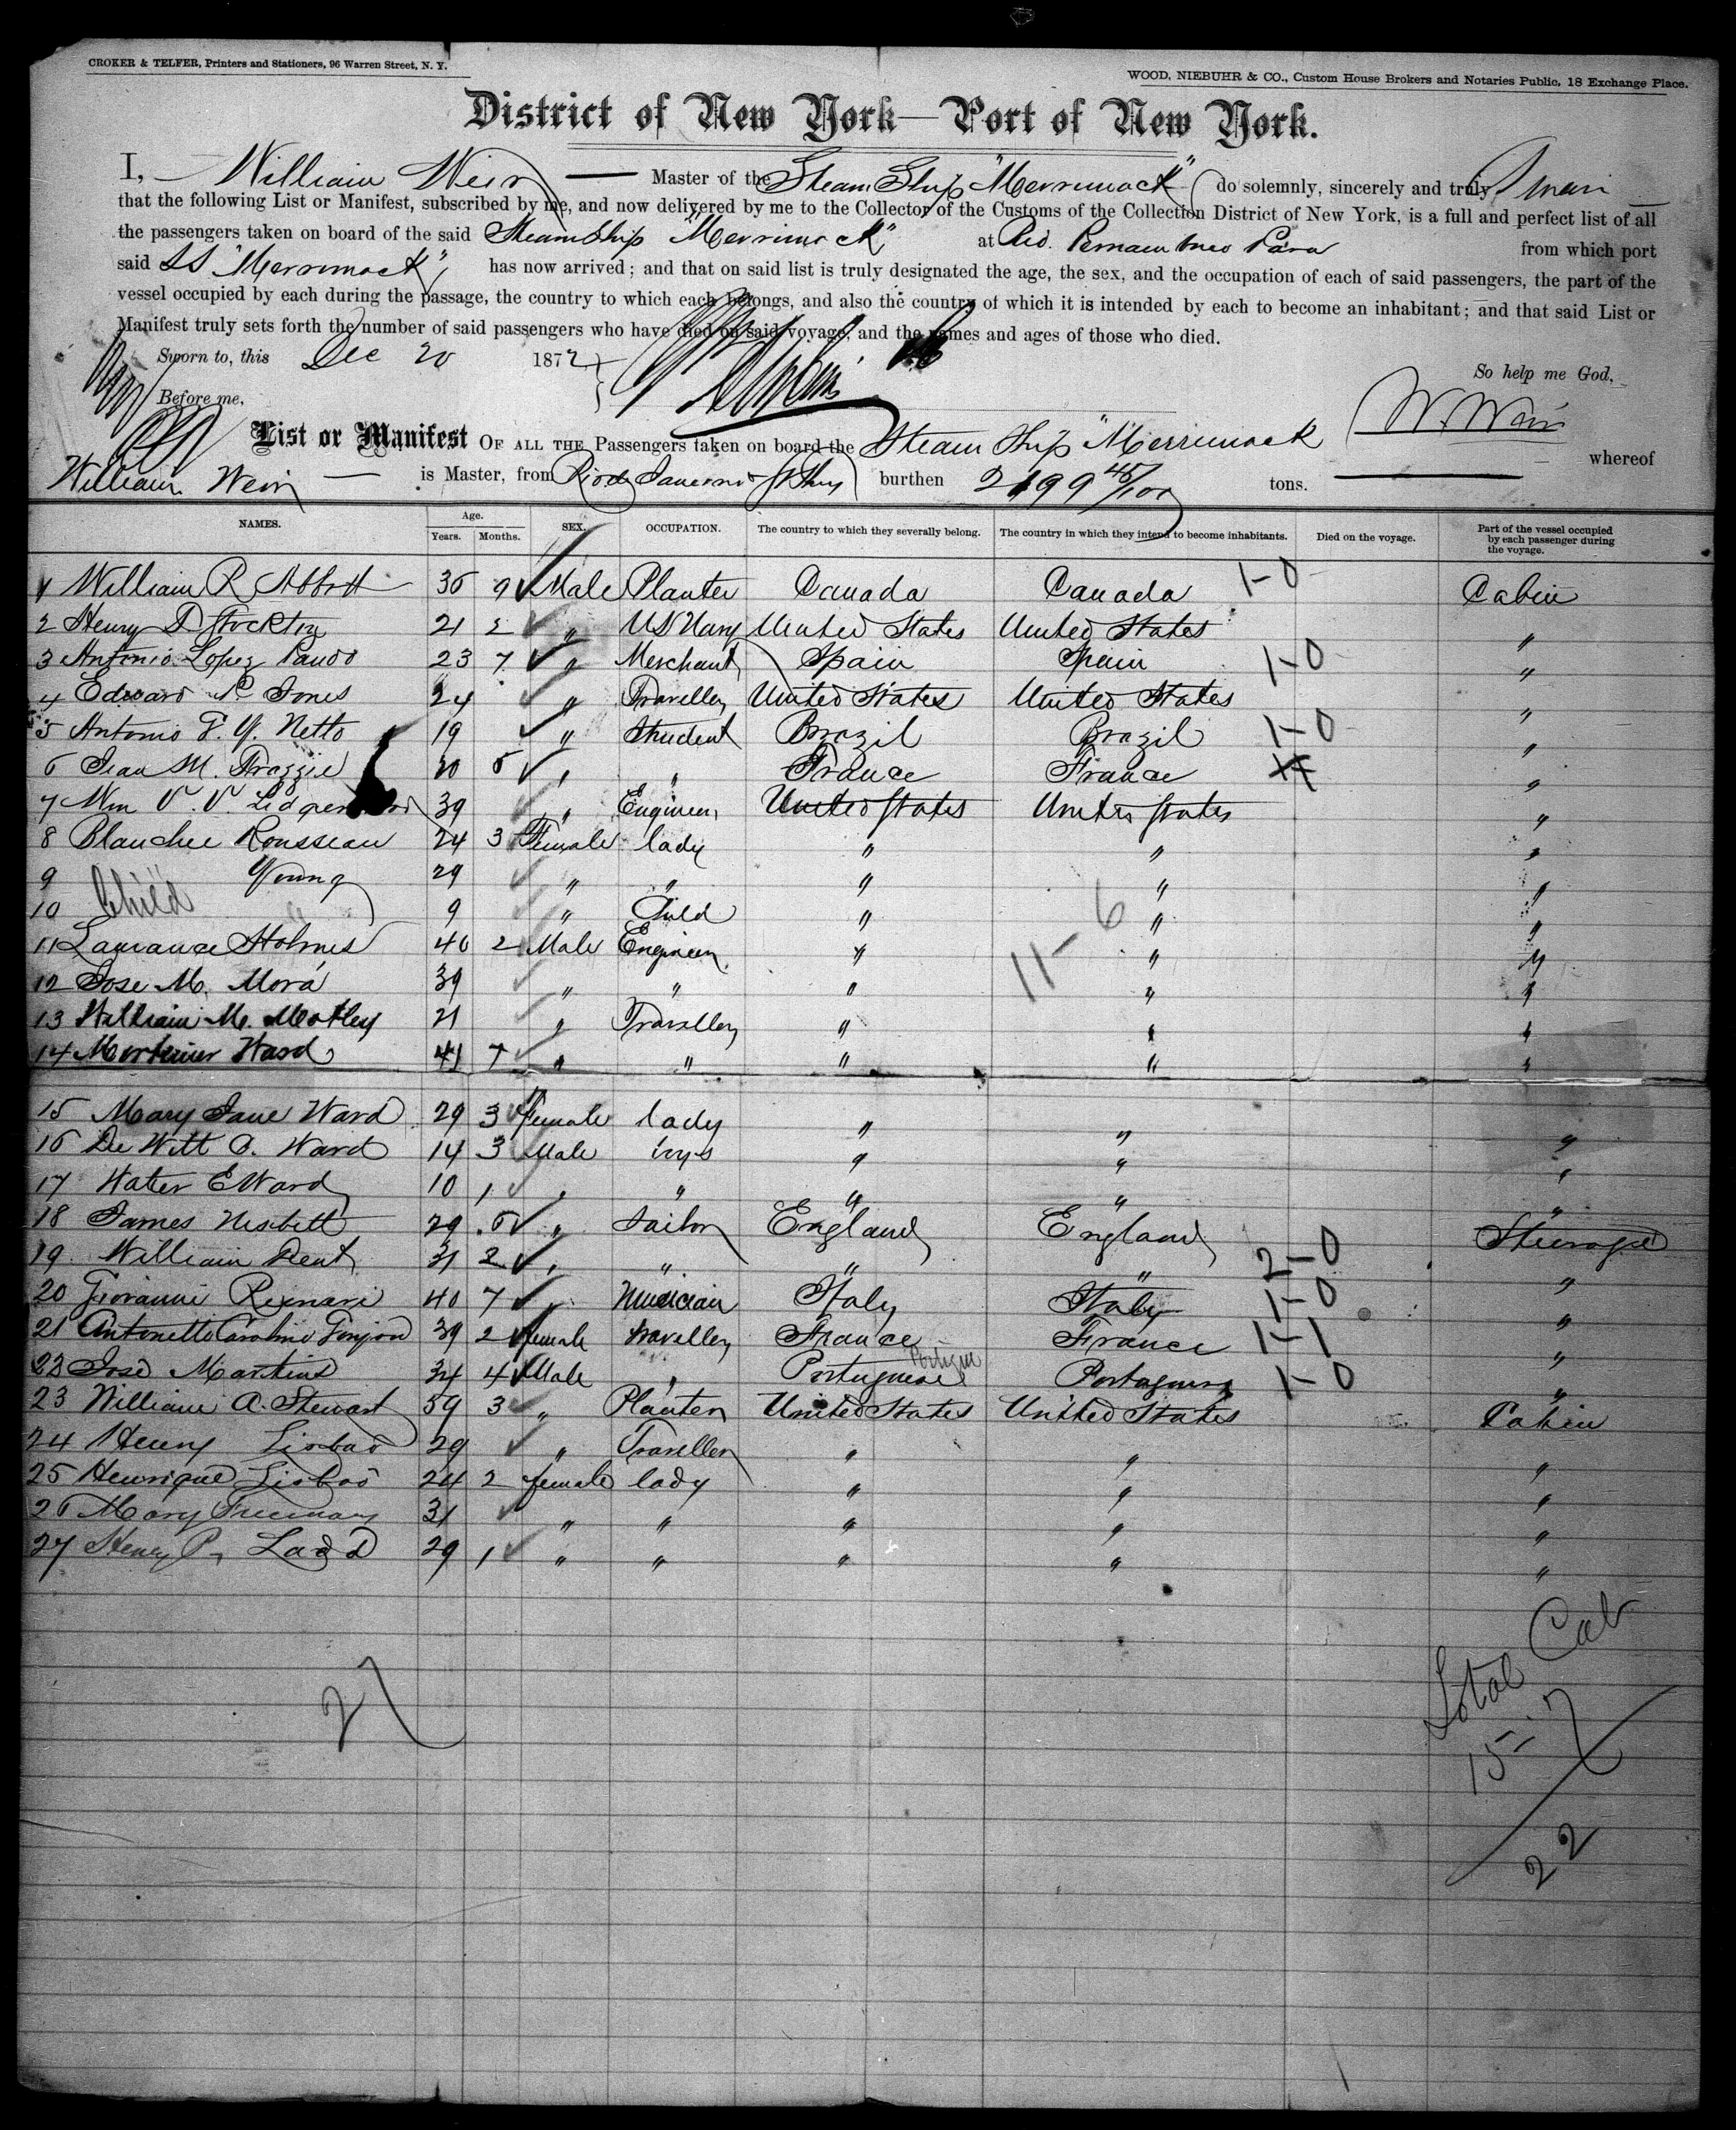 CROKER & TELFER, Printers and Stationers, 96 Warren Street, N. Y.
WOOD, NIEBUHR & CO., Custom House Brokers and Notaries Public, 18 Exchange Place.
District of New York—Port of New York.
I, William Weir Master of the Steam Ship "Merrimack" do solemnly, sincerely and truly Swear
that the following List or Manifest, subscribed by me, and now delivered by me to the Collector of the Customs of the Collection District of New York, is a full and perfect list of all
the passengers taken on board of the said Steam Ship "Merrimack" at Rio. Pernambuco Para from which port
said SS "Merrimack", has now arrived; and that on said list is truly designated the age, the sex, and the occupation of each of said passengers, the part of the
vessel occupied by each during the passage, the country to which each belongs, and also the country of which it is intended by each to become an inhabitant; and that said List or
Manifest truly sets forth the number of said passengers who have died on said voyage, and the names and ages of those who died.
Sworn to, this Dec 20 1872
So help me God,
Before me,
W. Weir
List or Manifest OF ALL THE Passengers taken on board the Steam Ship "Merrimack whereof
William Weir is Master, from Rio de Janeiro burthen 2199 45/100 tons.
NAMES. Age. Years. Months. SEX. OCCUPATION. The country to which they severally belong. The country in which they intend to become inhabitants. Died on the voyage. Part of the vessel occupied by each passenger during the voyage.
1 William R Abbott 36 9 Male Planter Canada Canada 1-0 Cabin
2 Henry D Stockton 21 2 " US Navy United States United States "
3 Antonio Lopez Pando 23 7 " Merchant Spain Spain 1-0 "
4 Edward P Jones 24 " Traveller United States United States "
5 Antonio F. Y. Netto 19 " Student Brazil Brazil 1-0 "
6 Jean M. 30 5 " " France France "
7 Wm V. V. 39 " Engineer United States United States "
8 Blanche Rousseau 24 3 Female lady " " "
9 Young 29 " " " " "
10 Child 9 " Child " " "
11 Laurance Holmes 40 2 Male Engineer " 11-6 " "
12 Jose M. Mora 39 " " " " "
13 William M. Motley 21 " Traveller " " "
14 Mortimer Ward 41 7 " " " " "
15 Mary Jane Ward 29 3 Female lady " " "
16 De Witt C. Ward 14 3 Male boys " " "
17 Walter E Ward 10 1 " " " " "
18 James Nisbett 29 5 " Sailor England England Steerage
19 William Dent 31 2 " " " " 2-0 "
20 Giovanni 40 7 " Musician Italy Italy 1-0 "
21 Antonette Caroline 39 2 female traveller France France 1-1 "
22 José Martins 34 4 Male " Portuguese Portuguese 1-0 "
23 William A. Stewart 59 3 " Planter United States United States Cabin
24 Henry Lisboa 29 " Traveller " " "
25 Henrique Lisboa 24 2 female lady " " "
26 Mary Freeman 31 " " " " "
27 Henry P. Ladd 29 1 " " " " "
27
Total Cab
15-7
22